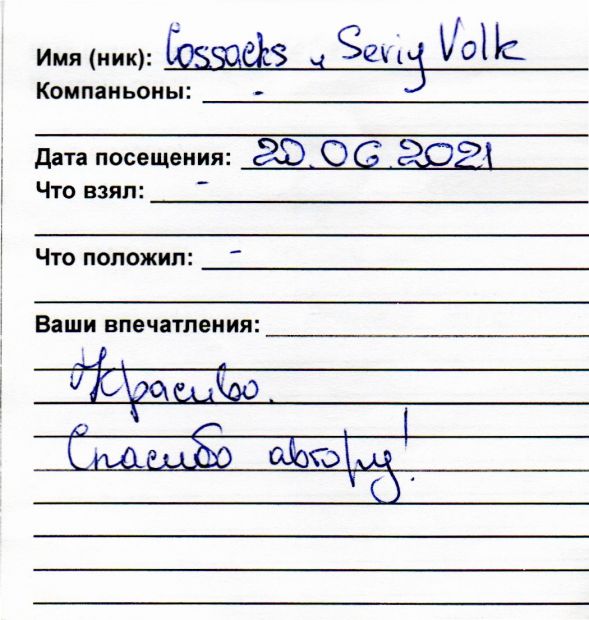 Имя (ник): Cossacks и Seriy Volk
Компаньоны: -
Дата посещения: 20.06.2021
Что взял: -
Что положил: -
Ваши впечатления:
Красиво.
Спасибо автору!